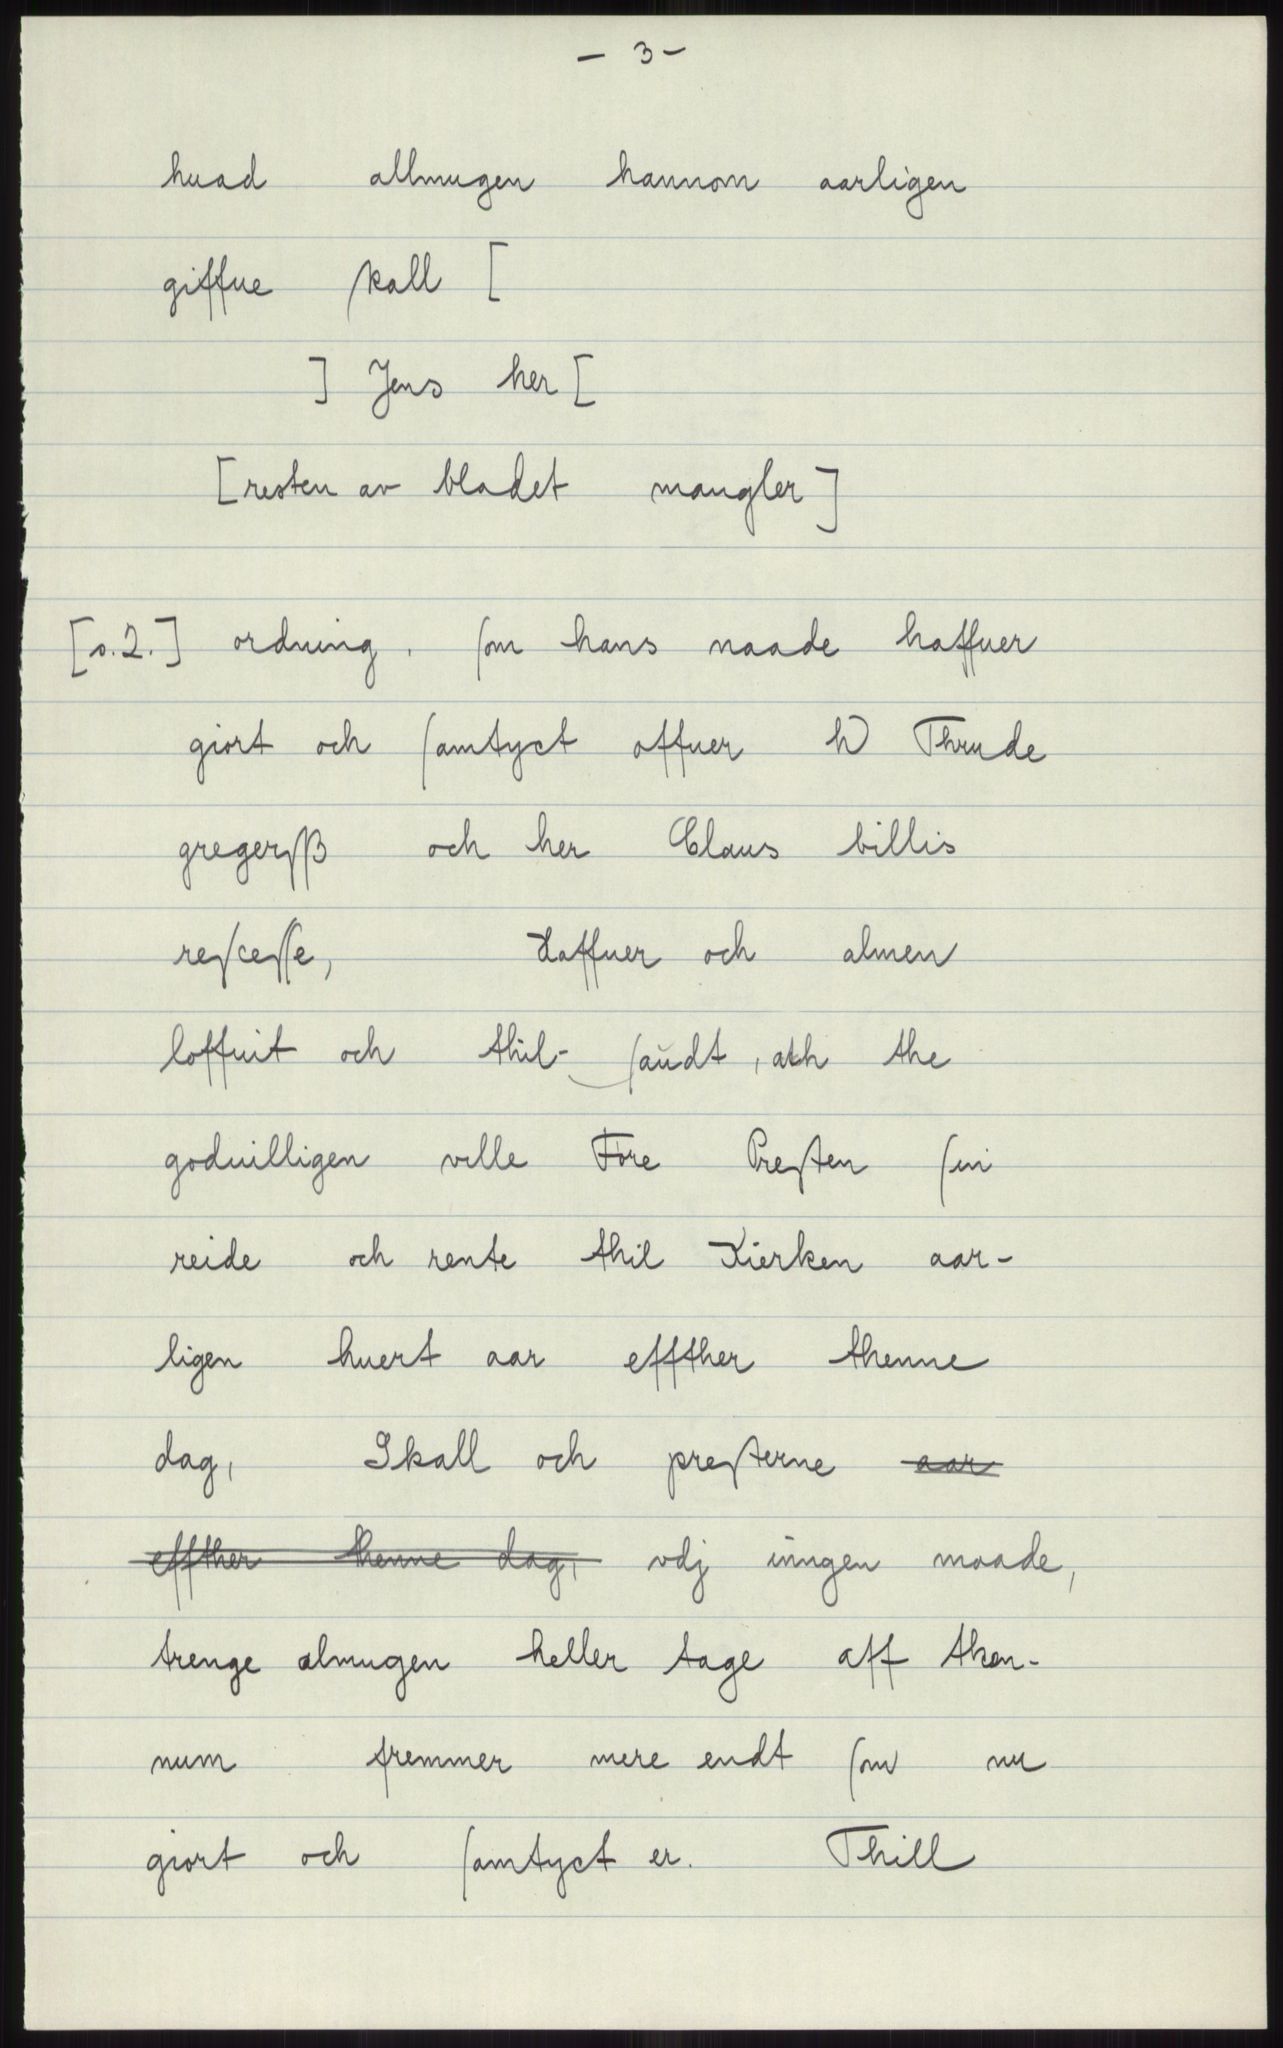 - 3 -
huad allmugen hannom aarligen
giffue ſkall [
] Jens her [
[resten av bladet mangler]
[s.2.] ordning, ſom hans naade haffuer
giort och ſamtyct offuer h) Thrude
gregerſſß och her Claus billis
reſceſſe, Haffuer och almen
loffuit och thil-ſaŭdt, ath the
goduilligen ville Føre Preſten ſin
reide och rente thil Kierken aar-
ligen huert aar effther thenne
dag, Skall och preſterne ~~aar~~
~~effther thenne dag,~~ vdj inngen maade,
trenge almugen heller tage aff then-
num fremmer mere endt ſom nu
giort och ſamtyct er. Thill